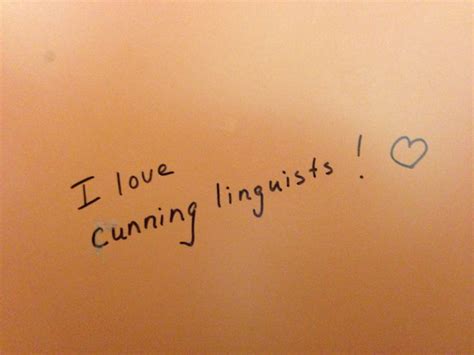 I love
cunning linguists! ♡